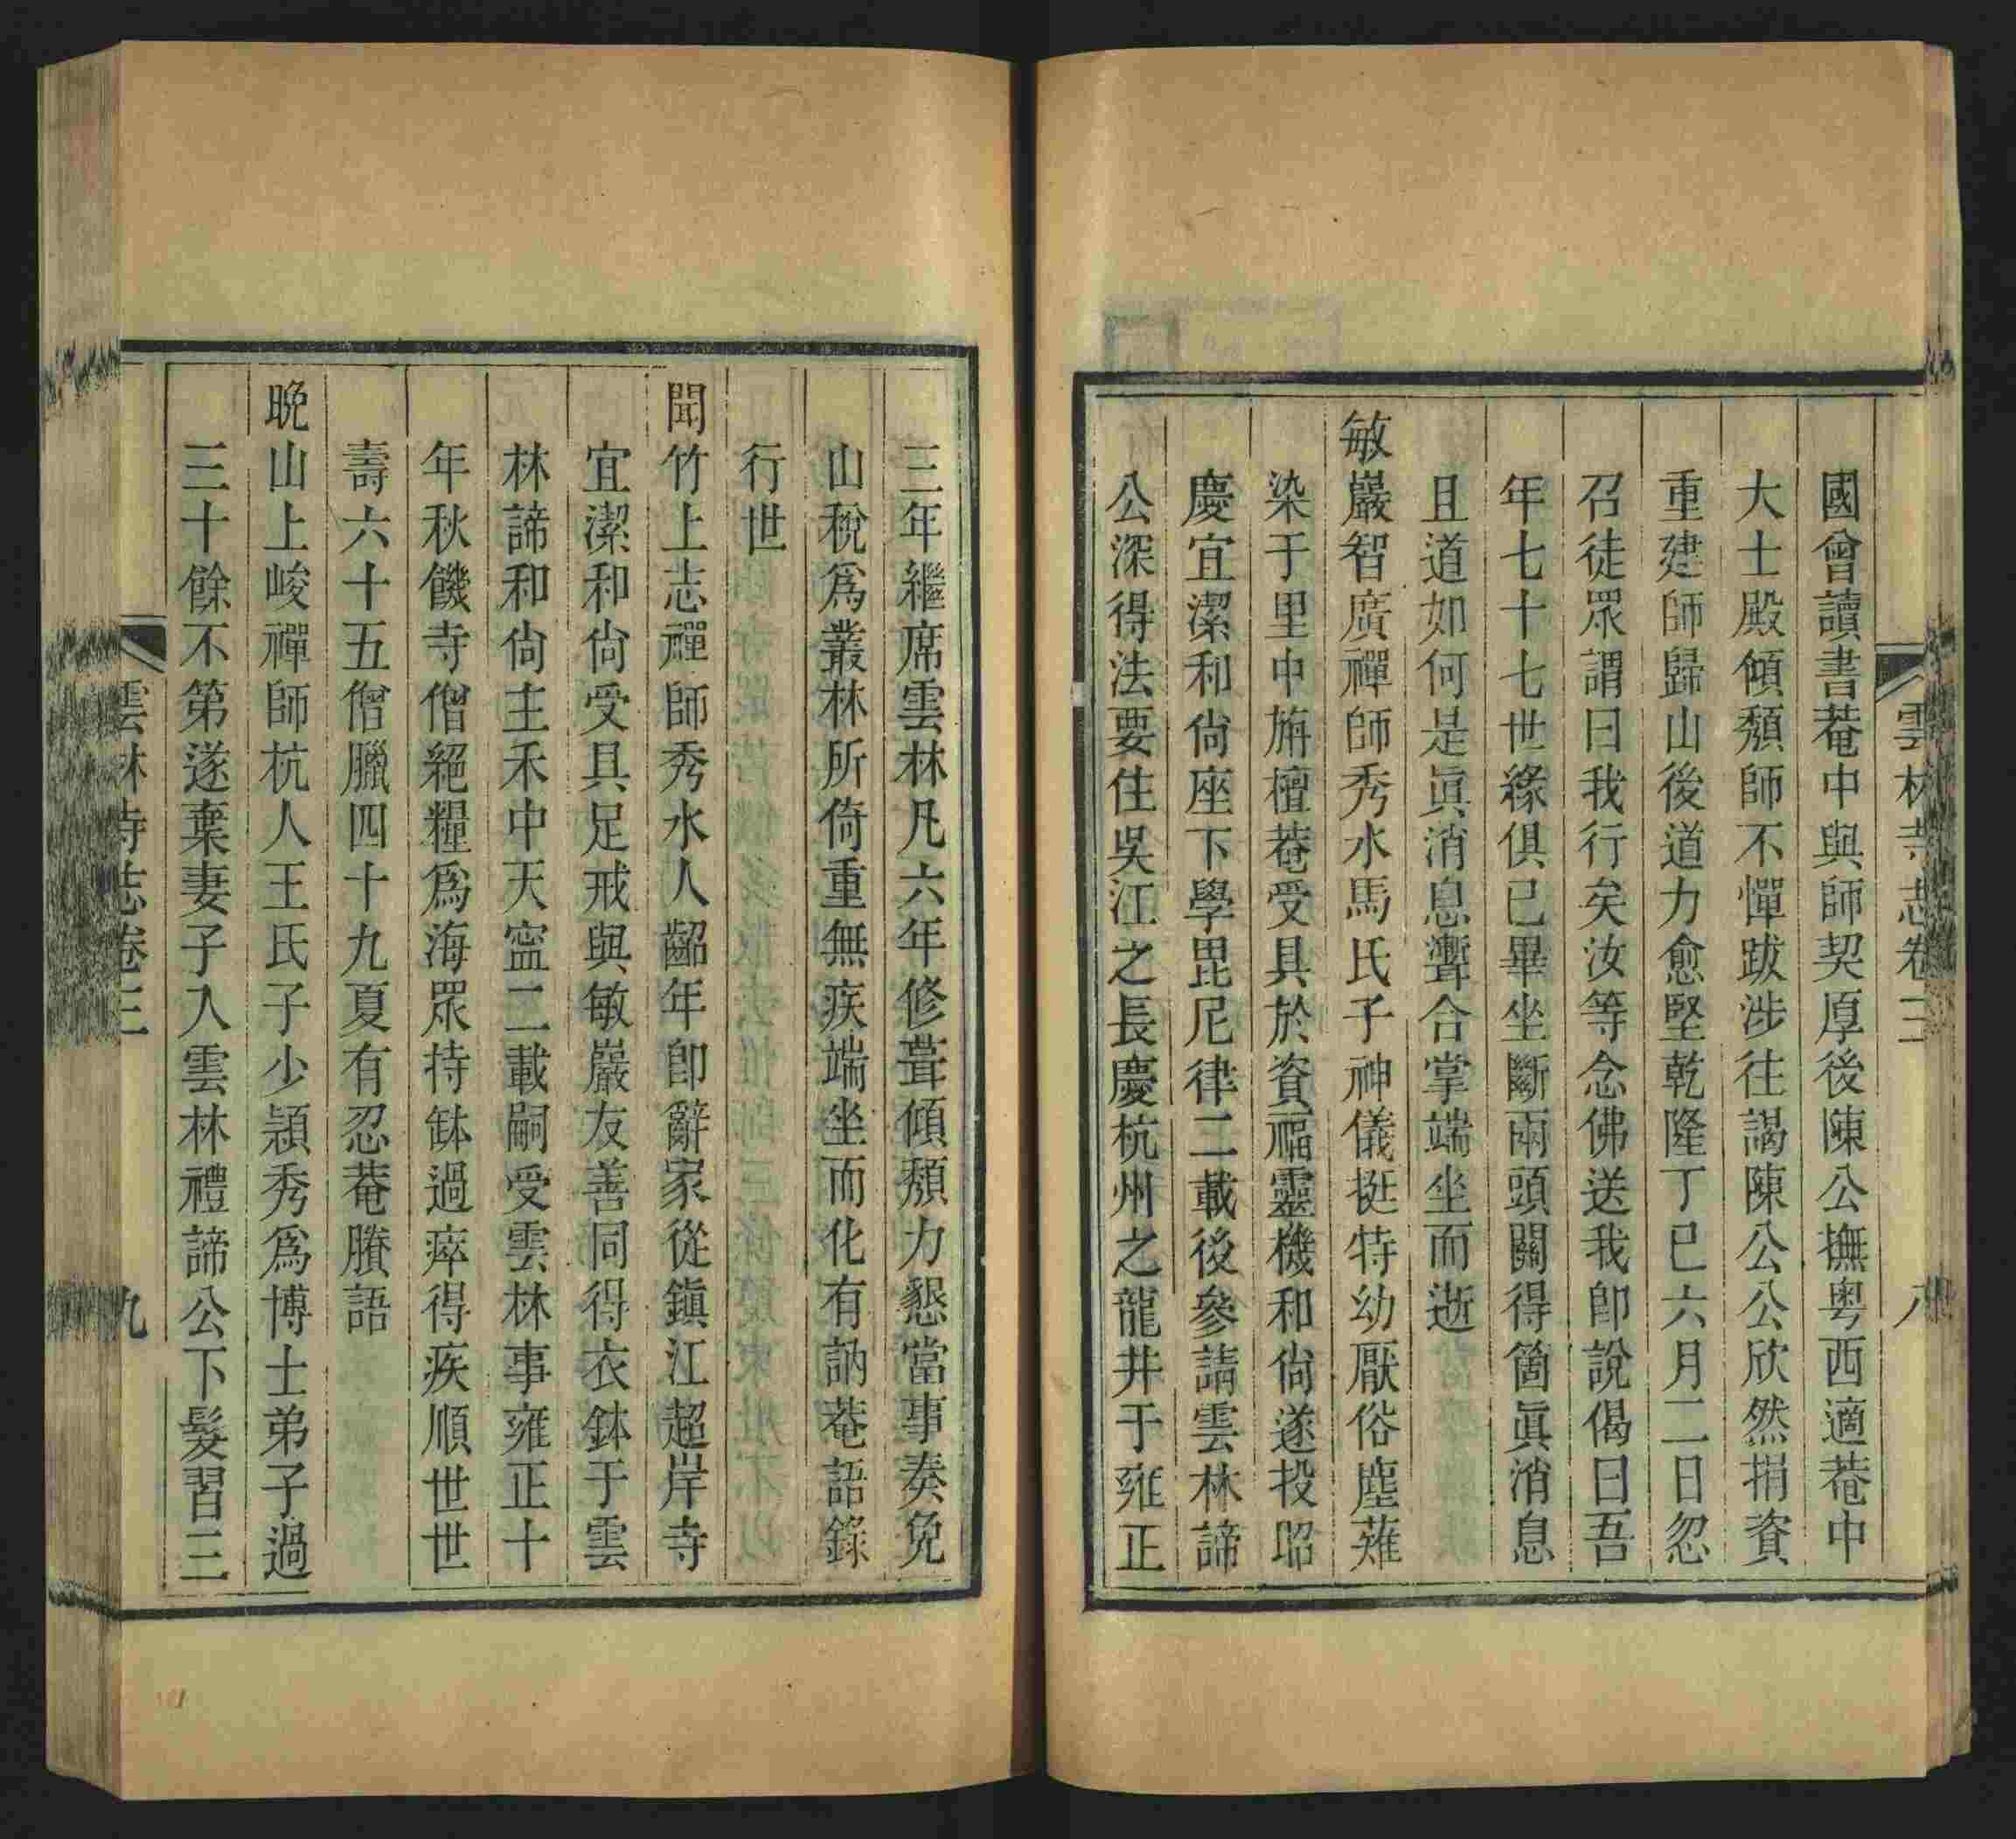 雲林寺志卷三 八
國曾讀書菴中與師契厚後陳公撫粤西適菴中
大士殿傾頽師不憚跋涉往謁陳公公欣然捐資
重建師歸山後道力愈堅乾隆丁巳六月二日忽
召徒眾謂曰我行矣汝等念佛送我卽說偈曰吾
年七十七世緣俱已畢坐斷兩頭關得箇眞消息
且道如何是眞消息聻合掌端坐而逝
敏巖智廣禪師秀水馬氏子神儀挺特幼厭俗塵薙
染于里中旃檀菴受具於資福靈機和尙遂投昭
慶宜潔和尙座下學毘尼律二載後參請雲林諦
公深得法要住吳江之長慶杭州之龍井于雍正
三年繼席雲林凡六年修葺傾頽力懇當事奏免
山稅爲叢林所倚重無疾端坐而化有訥菴語錄
行世
聞竹上志禪師秀水人齠年卽辭家從鎭江超岸寺
宜潔和尙受具足戒與敏巖友善同得衣鉢于雲
林諦和尙主禾中天寍二載嗣受雲林事雍正十
年秋饑寺僧絕糧爲海眾持鉢過瘁得疾順世世
壽六十五僧臘四十九夏有忍菴賸語
晚山上峻禪師杭人王氏子少穎秀爲博士弟子過
三十餘不第遂棄妻子入雲林禮諦公下髮習三
雲林寺志卷三 九